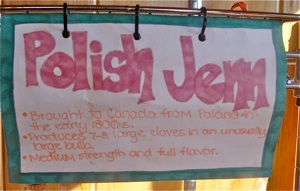 Polish Jem
• Brought to Canada from Poland in
the early 1800s.
• Produces 7-8 large cloves in an unusually
large bulb.
• Medium strength and full flavor.